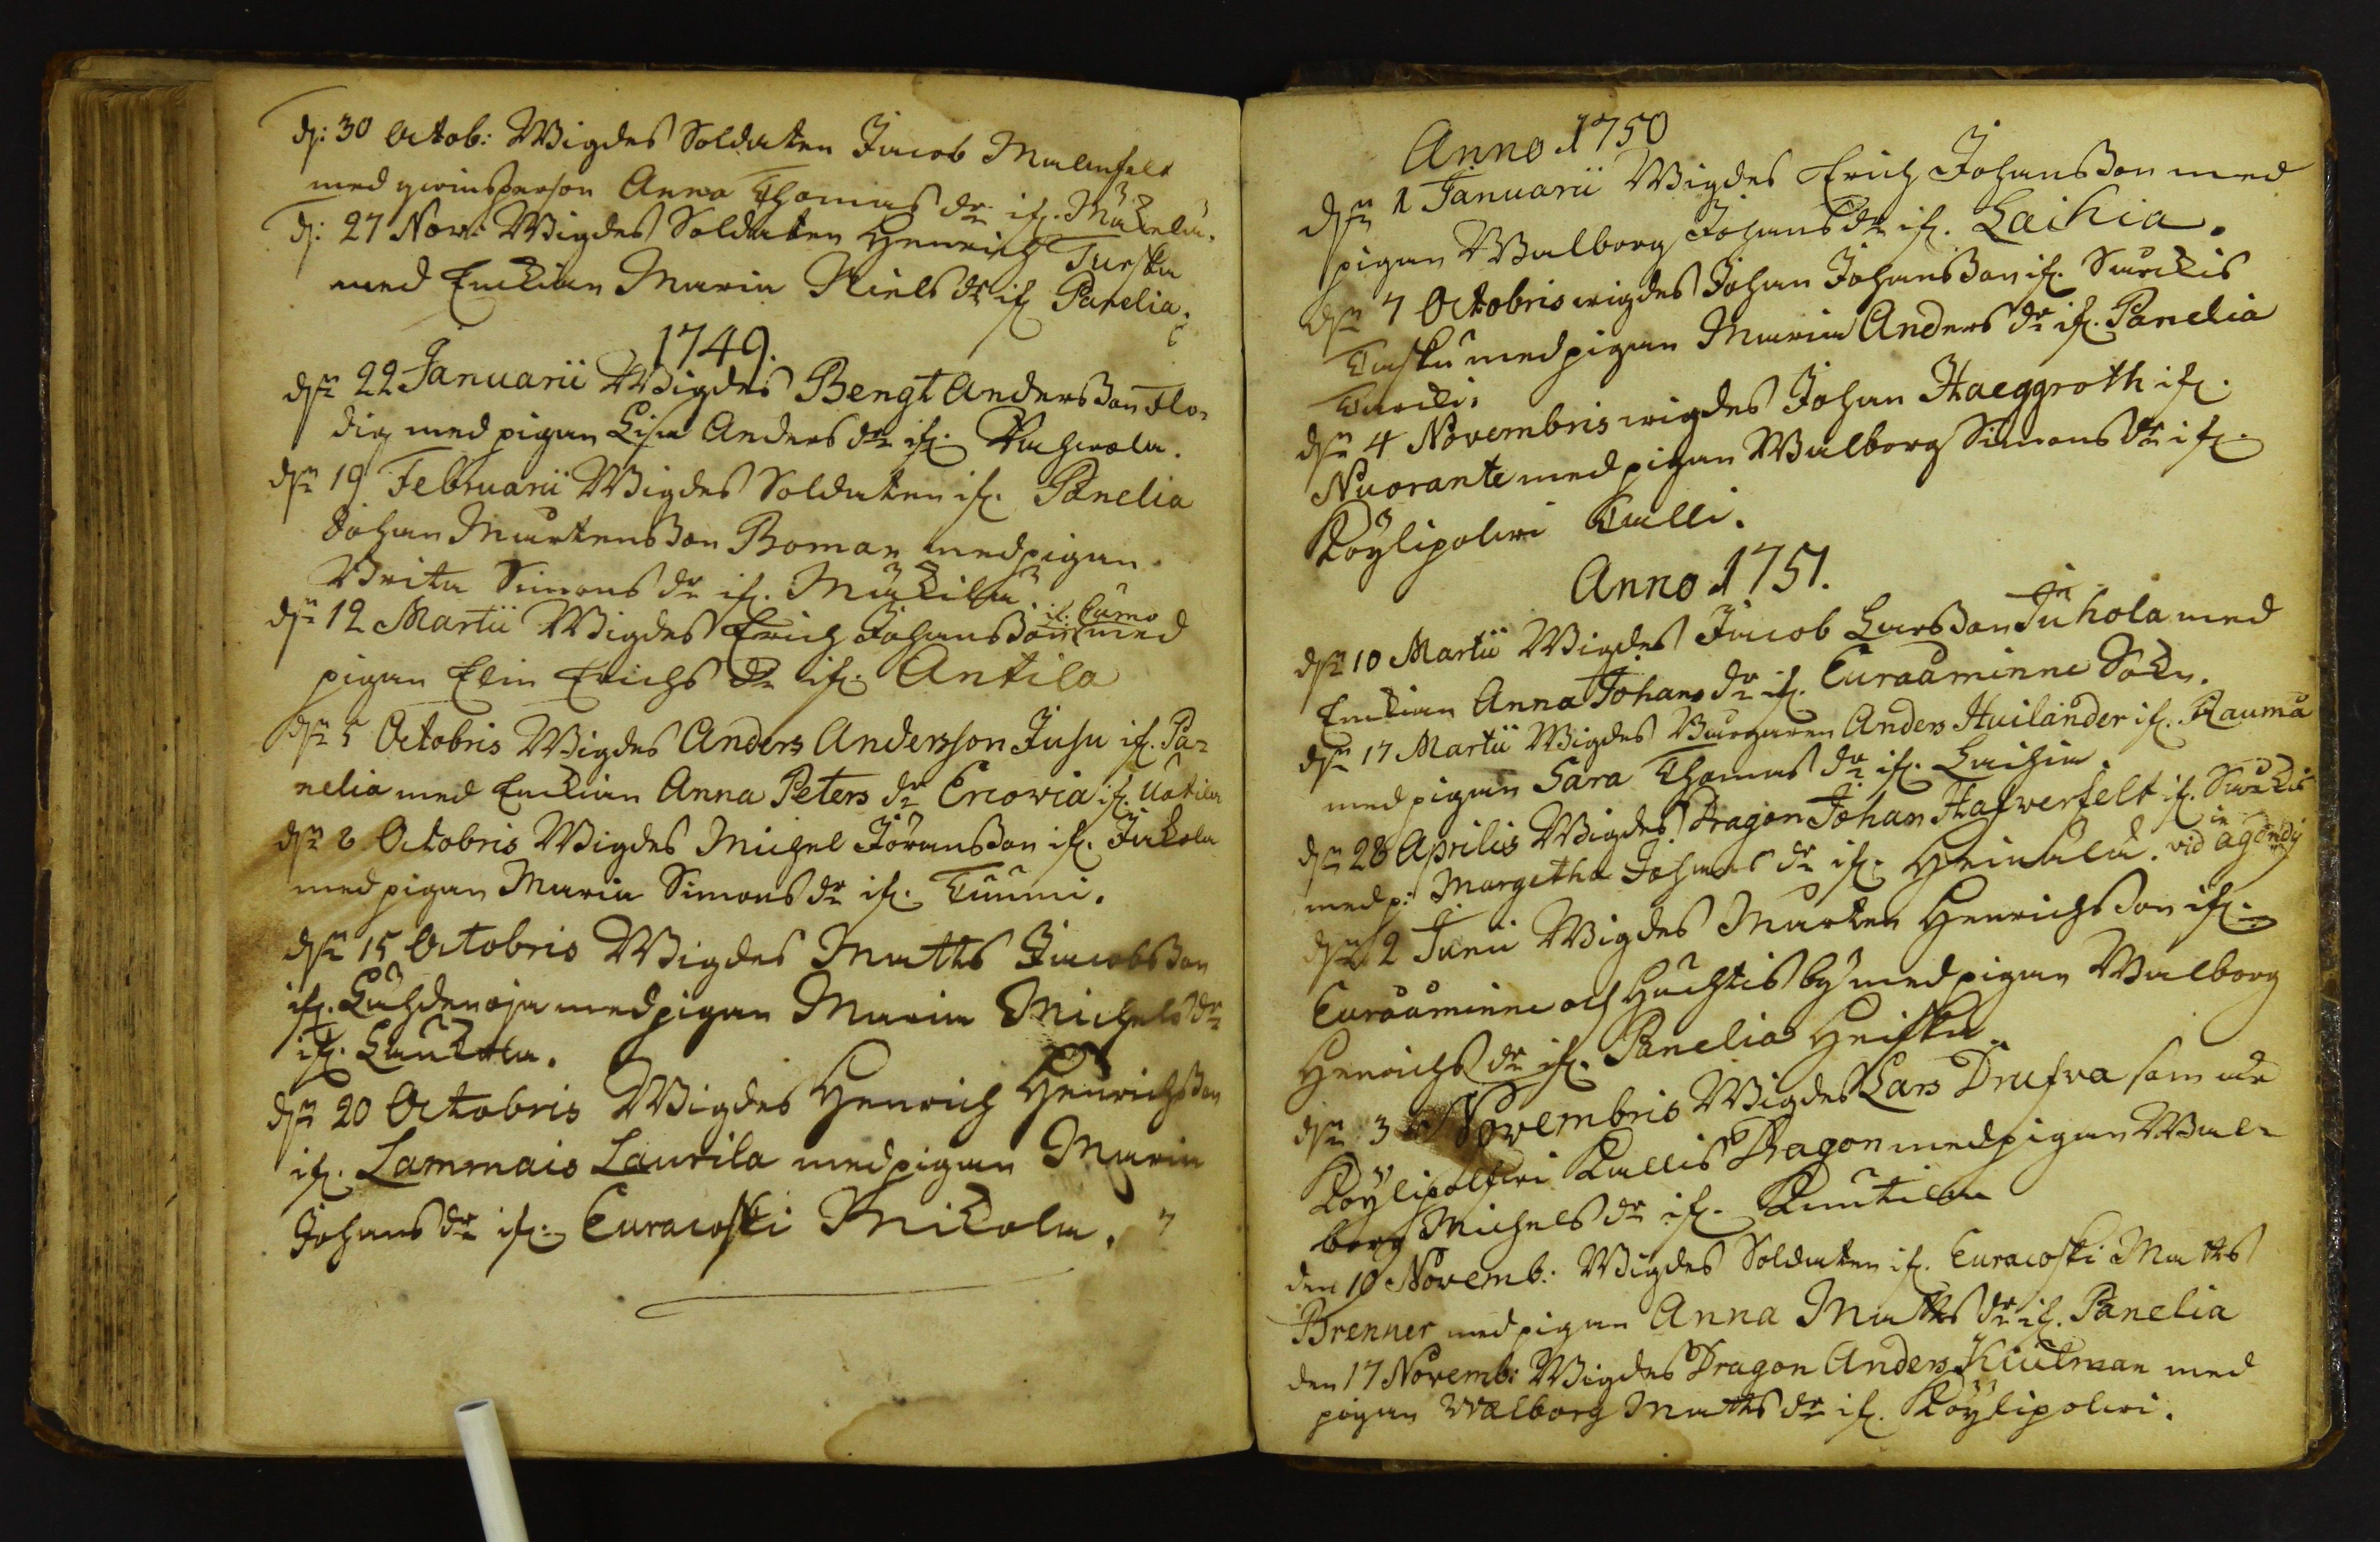 d: 30 Octob: Wigdes Soldaten Jacob Malmfelt
med qwinsperson Anna Thomas dr if. Mäkelä.
d: 27 Nov: Wigdes Soldaten Henrich Turska
med Enkian Maria Niels dr if Panelia.
1749.
dn 22 Januarii Wigdes Bengt Andersson Flo-
din med pigan Lisa Anders dr if.
dn 19 Februarii Wigdes Soldaten if. Panelia
Johan Mårtensson Boman med pigan
Brita Simons dr if. Mäkilä
dn 12 Martii Wigdes Erich Johansson if. Cumo med
pigan Elin Erichs dr if. Antila
dn 5 Octobris Wigdes Anders Andersson Jusu if. Pa-
nelia med Enkian Anna Peters dr if. Uotila
dn 8 Octobris Wigdes Michel Jöransson if. Jukola
med pigan Maria Simons dr if. Tuumi.
dn 15 Octobris Wigdes Matts Jacobsson
if. Lähdenoja med pigan Maria Michels dr
if. Laukola.
dn 20 Octobris Wigdes Henrich Henrichsson
if. Lammais Laurila med pigan Maria
Johans dr if. Euracoski Mikola. 7
Anno 1750
dn 1 Januarii Wigdes Erich Johansson med
pigan Walborg Johans dr if. Laihia.
dn 7 Octobris wigdes Johan Johansson if. Surckis
med pigan Maria Anders dr if. Panelia
dn 4 Novembris wigdes Johan Haeggroth if.
Nuorante med pigan Walborg Simons dr if.
Köylipolwi Kalli.
Anno 1751.
dn 10 Martii Wigdes Jacob Larsson Juhola med
Enkian Anna Johans dr if. Euraåminne Sokn.
dn 17 Martii Wigdes Borgaren Anders Huilander if. Rauma
med pigan Sara Thomas dr if. Laihia.
dn 28 Aprilis Wigdes Dragon Johan Hafwerfelt if. Surckis
med p: Margetha Johans dr if. Heinilä.
dn 2 Junii Wigdes Mårten Henrichsson if.
Euraåminne och Huchtis by med pigan Walborg
Henrichs dr if. Panelia Heiska
dn 3 Novembris Wigdes Lars Drufva som är
Köylipolfwi Kallis Dragon med pigan Wal-
borg Michels dr if. Kuutila
den 10 Novemb: Wigdes Soldaten if. Euracoski Matts
Brenner med pigan Anna Matts dr if. Panelia
den 17 Novemb: Wigdes Dragon Anders Klutman med
pigan Walborg Matts dr if. Köylipolwi.